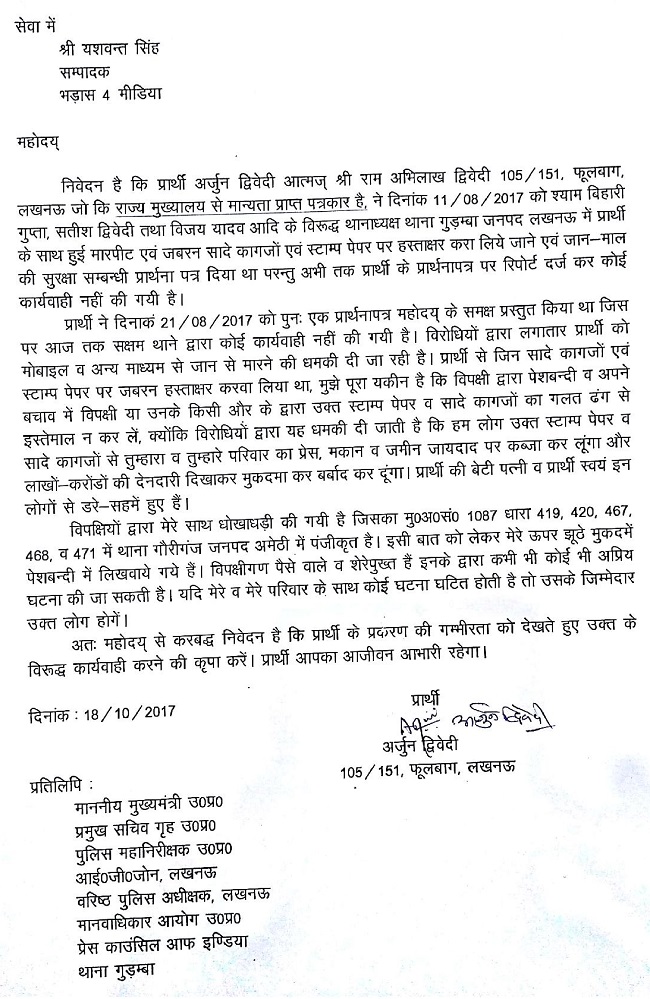 सेवा में
श्री यशवन्त सिंह
सम्पादक
भड़ास 4 मीडिया
महोदय्
निवेदन है कि प्रार्थी अर्जुन द्विवेदी आत्मज् श्री राम अभिलाख द्विवेदी 105/151, फूलबाग,
लखनऊ जो कि राज्य मुख्यालय से मान्यता प्राप्त पत्रकार है, ने दिनांक 11/08/2017 को श्याम बिहारी
गुप्ता, सतीश द्विवेदी तथा विजय यादव आदि के विरूद्ध थानाध्यक्ष थाना गुड़म्बा जनपद लखनऊ में प्रार्थी
के साथ हुई मारपीट एवं जबरन सादे कागजों एवं स्टाम्प पेपर पर हस्ताक्षर करा लिये जाने एवं जान–माल
की सुरक्षा सम्बन्धी प्रार्थना पत्र दिया था परन्तु अभी तक प्रार्थी के प्रार्थनापत्र पर रिपोर्ट दर्ज कर कोई
कार्यवाही नहीं की गयी है।
प्रार्थी ने दिनाकं 21/08/2017 को पुनः एक प्रार्थनापत्र महोदय् के समक्ष प्रस्तुत किया था जिस
पर आज तक सक्षम थाने द्वारा कोई कार्यवाही नहीं की गयी है। विरोधियों द्वारा लगातार प्रार्थी को
मोबाइल व अन्य माध्यम से जान से मारने की धमकी दी जा रही है। प्रार्थी से जिन सादे कागजों एवं
स्टाम्प पेपर पर जबरन हस्ताक्षर करवा लिया था, मुझे पूरा यकीन है कि विपक्षी द्वारा पेशबन्दी व अपने
बचाव में विपक्षी या उनके किसी और के द्वारा उक्त स्टाम्प पेपर व सादे कागजों का गलत ढंग से
इस्तेमाल न कर लें, क्योंकि विरोधियों द्वारा यह धमकी दी जाती है कि हम लोग उक्त स्टाम्प पेपर व
सादे कागजों से तुम्हारा व तुम्हारे परिवार का प्रेस, मकान व जमीन जायदाद पर कब्जा कर लूंगा और
लाखों–करोंडों की देनदारी दिखाकर मुकदमा कर बर्बाद कर दूंगा। प्रार्थी की बेटी पत्नी व प्रार्थी स्वयं इन
लोगों से डरे–सहमें हुए हैं।
विपक्षियों द्वारा मेरे साथ धोखाघड़ी की गयी है जिसका मु0अ0सं0 1087 धारा 419, 420, 467,
468, व 471 में थाना गौरीगंज जनपद अमेठी में पंजीकृत है। इसी बात को लेकर मेरे ऊपर झूठे मुकदमें
पेशबन्दी में लिखवाये गये हैं। विपक्षीगण पैसे वाले व शेरेपुख्त हैं इनके द्वारा कभी भी कोई भी अप्रिय
घटना की जा सकती है। यदि मेरे व मेरे परिवार के साथ कोई घटना घटित होती है तो उसके जिम्मेदार
उक्त लोग होगें।
अतः महोदय् से करबद्ध निवेदन है कि प्रार्थी के प्रकरण की गम्भीरता को देखते हुए उक्त के
विरूद्ध कार्यवाही करने की कृपा करें। प्रार्थी आपका आजीवन आभारी रहेगा।
दिनांक : 18/10/2017
प्रार्थी
अर्जुन द्विवेदी
अर्जुन द्विवेदी
105/151, फूलबाग, लखनऊ
प्रतिलिपि :
माननीय मुख्यमंत्री उ0प्र0
प्रमुख सचिव गृह उ0प्र0
पुलिस महानिरीक्षक उ0प्र0
आई0जी0जोन, लखनऊ
वरिष्ठ पुलिस अधीक्षक, लखनऊ
मानवाधिकार आयोग उ0प्र0
प्रेस काउंसिल आफ इण्डिया
थाना गुड़म्बा